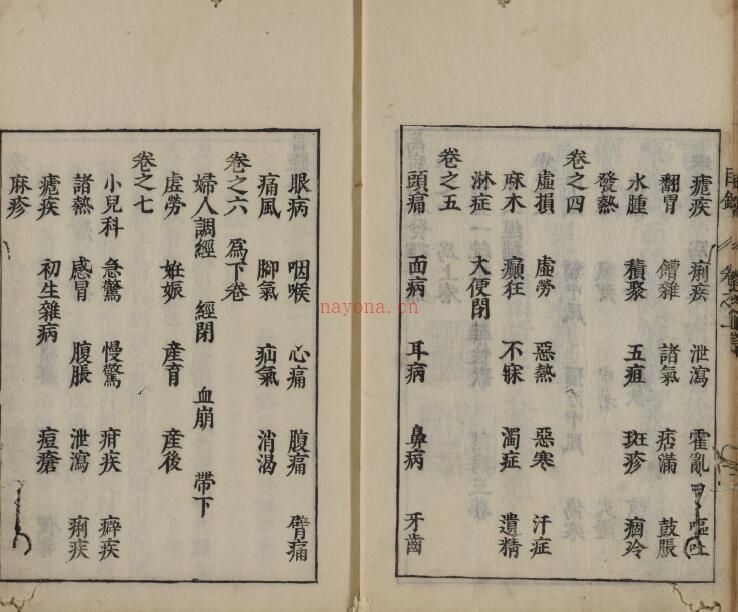 瘧疾 痢疾 泄瀉 霍亂 嘔吐
翻胃 饐雜 諸氣 痞滿 鼓脹
水腫 積聚 五疸 斑疹 痼冷
發熱
卷之四
虛損 虛勞 惡熱 惡寒 汗症
麻木 癲狂 不寐 濁症 遺精
淋症 大便閉
卷之五
頭痛 面病 耳病 鼻病 牙齒
眼病 咽喉 心痛 腹痛 臂痛
痛風 腳氣 疝氣 消渴
卷之六 爲下卷
婦人調經 經閉 血崩 帶下
虛勞 姙娠 產育 產後
卷之七
小兒科 急驚 慢驚 疳疾 癖疾
諸熱 感冒 腹脹 泄瀉 痢疾
瘧疾 初生雜病 痘瘡
麻疹
目錄
nayona.cn